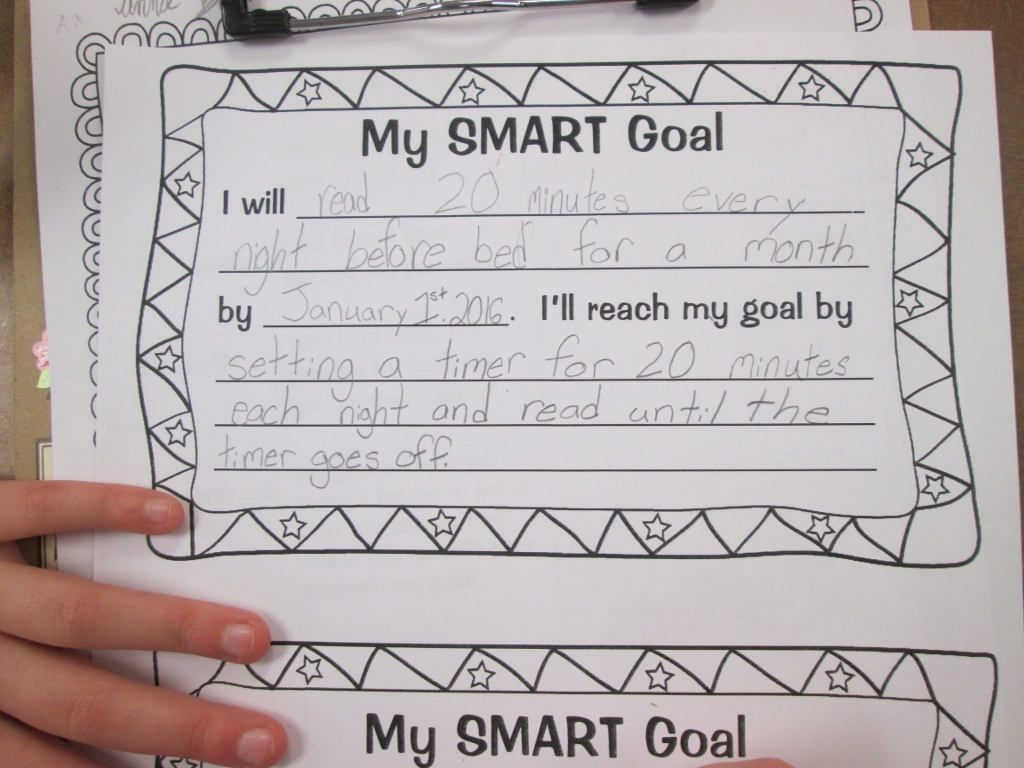 My SMART Goal
I will read 20 minutes every
night before bed for a month
by January 1st. 2016. I'll reach my goal by
setting a timer for 20 minutes
each night and read until the
timer goes off.
My SMART Goal